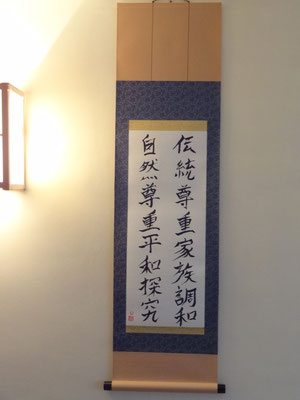 伝統尊重家族調和
自然尊重平和探究